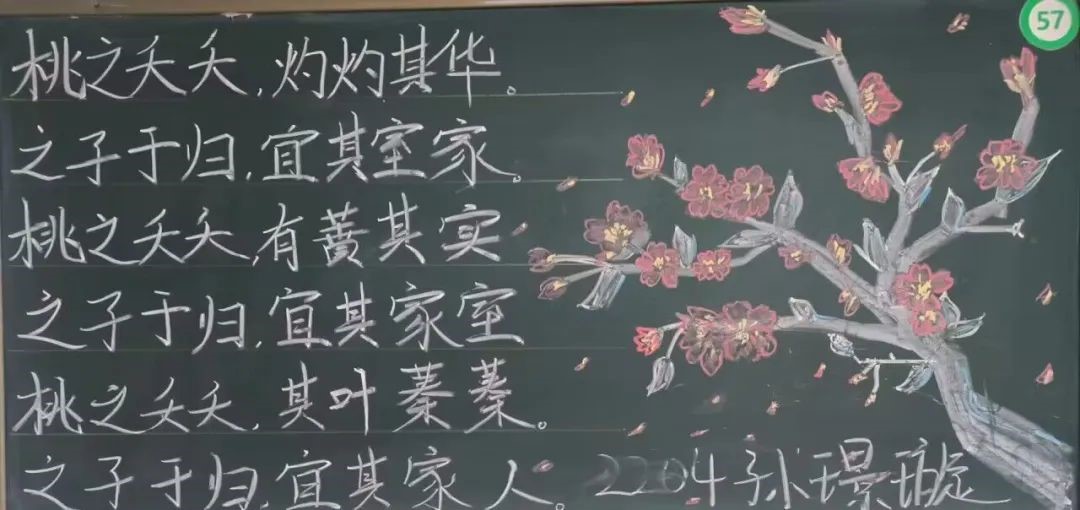 桃之夭夭,灼灼其华。
之子于归,宜其室家。
桃之夭夭,有蕡其实
之子于归,宜其家室
桃之夭夭,其叶蓁蓁。
之子于归,宜其家人。2204孙璟璇
57